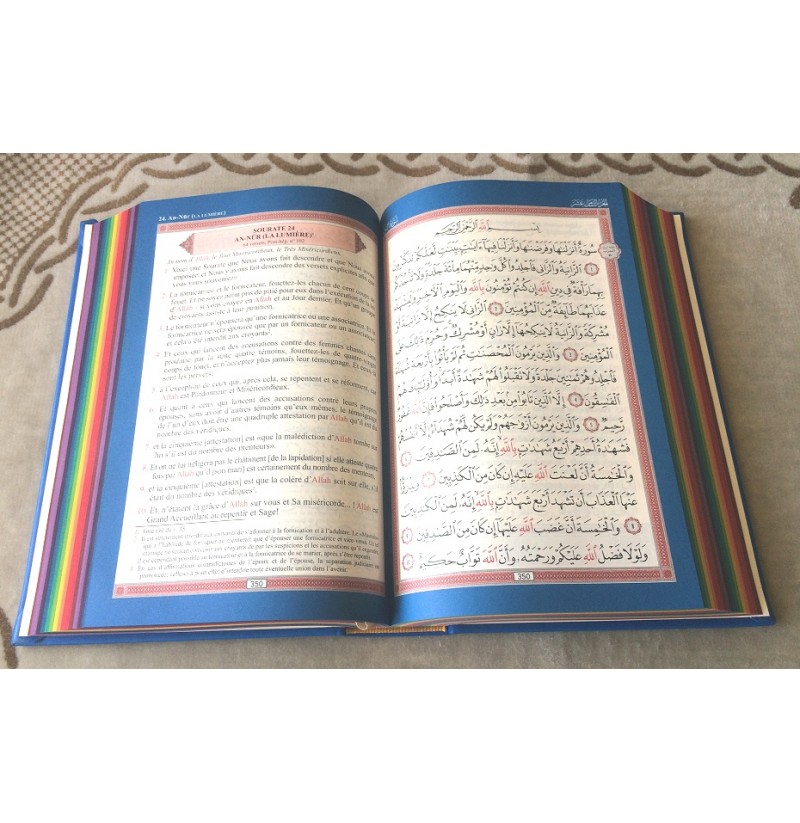 24. An-Nûr (LA LUMIÈRE)
SOURATE 24
AN-NÛR (LA LUMIÈRE)¹
64 versets, Post-hég. n° 102
Au nom d'Allah, le Tout Miséricordieux, le Très Miséricordieux.
1. Voici une Sourate que Nous avons fait descendre et que Nous avons
imposée, et Nous y avons fait descendre des versets explicites afin que
vous vous souveniez».
2. La fornicatrice et le fornicateur, fouettez-les chacun de cent coups de
fouet. Et ne soyez point pris de pitié pour eux dans l'exécution de la loi
d'Allah - si vous croyez en Allah et au Jour dernier. Et qu'un groupe
de croyants assiste à leur punition.
3. Le fornicateur n'épousera qu'une fornicatrice ou une associatrice. Et la
fornicatrice ne sera épousée que par un fornicateur ou un associateur;
et cela a été interdit aux croyants².
4. Et ceux qui lancent des accusations contre des femmes chastes sans
produire par la suite quatre témoins, fouettez-les de quatre-vingts
coups de fouet, et n'acceptez plus jamais leur témoignage. Et ceux-là
sont les pervers,
5. à l'exception de ceux qui, après cela, se repentent et se réforment, car
Allah est Pardonneur et Miséricordieux.
6. Et quant à ceux qui lancent des accusations contre leurs propres
épouses, sans avoir d'autres témoins qu'eux mêmes, le témoignage
de l'un d'eux doit être une quadruple attestation par Allah qu'il est du
nombre des véridiques,
7. et la cinquième [attestation] est «que la malédiction d'Allah tombe sur
lui s'il est du nombre des menteurs».
8. Et on ne lui infligera pas le châtiment [de la lapidation] si elle atteste quatre
fois par Allah qu'il [son mari] est certainement du nombre des menteurs,
9. et la cinquième [attestation] est que la colère d'Allah soit sur elle, s'il
était du nombre des véridiques³.
10. Et, n'étaient la grâce d'Allah sur vous et Sa miséricorde...! Allah est
Grand Accueillant au repentir et Sage!
350
بِسۡمِ ٱللَّهِ ٱلرَّحۡمَٰنِ ٱلرَّحِيمِ
سُورَةٌ أَنزَلۡنَٰهَا وَفَرَضۡنَٰهَا وَأَنزَلۡنَا فِيهَآ ءَايَٰتِۭ بَيِّنَٰتٖ لَّعَلَّكُمۡ تَذَكَّرُونَ
١ ٱلزَّانِيَةُ وَٱلزَّانِي فَٱجۡلِدُواْ كُلَّ وَٰحِدٖ مِّنۡهُمَا مِاْئَةَ جَلۡدَةٖۖ وَلَا تَأۡخُذۡكُم
بِهِمَا رَأۡفَةٞ فِي دِينِ ٱللَّهِ إِن كُنتُمۡ تُؤۡمِنُونَ بِٱللَّهِ وَٱلۡيَوۡمِ ٱلۡأٓخِرِۖ وَلۡيَشۡهَدۡ
عَذَابَهُمَا طَآئِفَةٞ مِّنَ ٱلۡمُؤۡمِنِينَ ٢ ٱلزَّانِي لَا يَنكِحُ إِلَّا زَانِيَةً أَوۡ
مُشۡرِكَةٗ وَٱلزَّانِيَةُ لَا يَنكِحُهَآ إِلَّا زَانٍ أَوۡ مُشۡرِكٞۚ وَحُرِّمَ ذَٰلِكَ عَلَى
ٱلۡمُؤۡمِنِينَ ٣ وَٱلَّذِينَ يَرۡمُونَ ٱلۡمُحۡصَنَٰتِ ثُمَّ لَمۡ يَأۡتُواْ بِأَرۡبَعَةِ شُهَدَآءَ
فَٱجۡلِدُوهُمۡ ثَمَٰنِينَ جَلۡدَةٗ وَلَا تَقۡبَلُواْ لَهُمۡ شَهَٰدَةً أَبَدٗاۚ وَأُوْلَٰٓئِكَ هُمُ
ٱلۡفَٰسِقُونَ ٤ إِلَّا ٱلَّذِينَ تَابُواْ مِنۢ بَعۡدِ ذَٰلِكَ وَأَصۡلَحُواْ فَإِنَّ ٱللَّهَ غَفُورٞ
رَّحِيمٞ ٥ وَٱلَّذِينَ يَرۡمُونَ أَزۡوَٰجَهُمۡ وَلَمۡ يَكُن لَّهُمۡ شُهَدَآءُ إِلَّآ أَنفُسُهُمۡ
فَشَهَٰدَةُ أَحَدِهِمۡ أَرۡبَعُ شَهَٰدَٰتِۭ بِٱللَّهِ إِنَّهُۥ لَمِنَ ٱلصَّٰدِقِينَ ٦
وَٱلۡخَٰمِسَةُ أَنَّ لَعۡنَتَ ٱللَّهِ عَلَيۡهِ إِن كَانَ مِنَ ٱلۡكَٰذِبِينَ ٧ وَيَدۡرَؤُاْ
عَنۡهَا ٱلۡعَذَابَ أَن تَشۡهَدَ أَرۡبَعَ شَهَٰدَٰتِۭ بِٱللَّهِ إِنَّهُۥ لَمِنَ ٱلۡكَٰذِبِينَ
٨ وَٱلۡخَٰمِسَةَ أَنَّ غَضَبَ ٱللَّهِ عَلَيۡهَآ إِن كَانَ مِنَ ٱلصَّٰدِقِينَ ٩
وَلَوۡلَا فَضۡلُ ٱللَّهِ عَلَيۡكُمۡ وَرَحۡمَتُهُۥ وَأَنَّ ٱللَّهَ تَوَّابٌ حَكِيمٌ ١٠
350